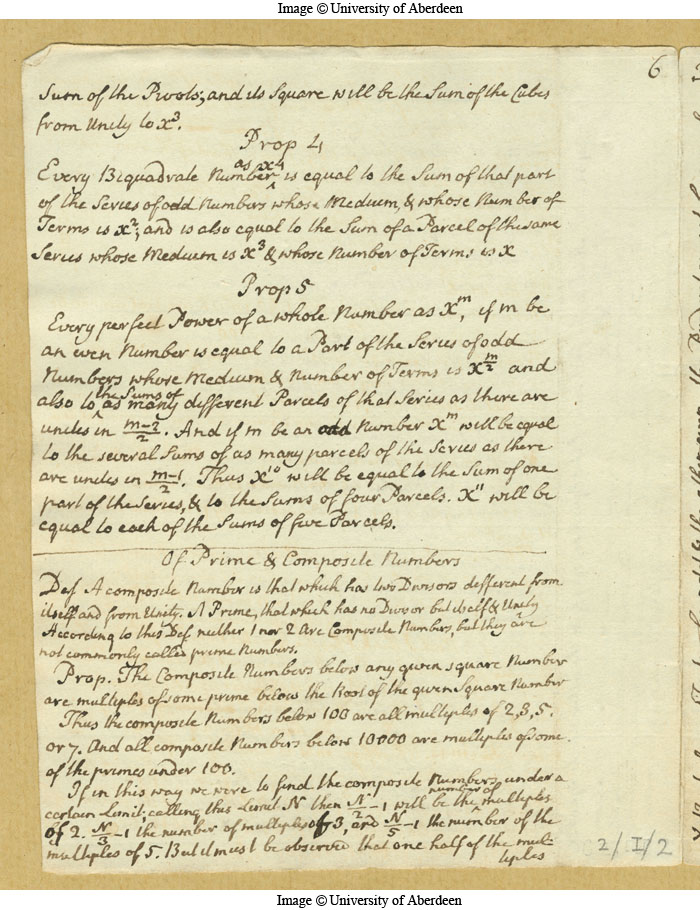 Image © University of Aberdeen
6
Sum of the Roots; and its Square will be the Sum of the Cubes
from Unity to x³.
Prop 4
Every Biquadrate Number as x4 is equal to the Sum of that part
of the Series of odd Numbers whose Medium, & whose Number of
Terms is x²; and is also equal to the Sum of a Parcel of the same
Series whose Medium is x³ & whose Number of Terms is x
Prop 5
Every perfect Power of a whole Number as X^m, if m be
an even Number is equal to a Part of the Series of odd
Numbers whose Medium & Number of Terms is X^(m/2) and
also to the Sums of as many different Parcels of that Series as there are
unites in (m-2)/2. And if m be an odd Number X^m will be equal
to the several Sums of as many parcels of the Series as there
are unites in (m-1)/2. Thus X^10 will be equal to the Sum of one
part of the Series, & to the Sums of four Parcels. X^11 will be
equal to each of the Sums of five Parcels.
Of Prime & Composite Numbers
Def A composite Number is that which has two Divisors different from
itself and from Unity. A Prime, that which has no Divisor but itself & Unity
According to this Def neither 1 nor 2 are Composite Numbers, but they are
not commonly called prime Numbers.
Prop. The Composite Numbers below any given Square Number
are multiples of some prime below the Root of the given Square Number
Thus the composite Numbers below 100 are all multiples of 2, 3, 5.
or 7. And all composite Numbers below 10000 are multiples of some
of the primes under 100.
If in this way we were to find the composite Numbers under a
certain Limit; calling this Limit N then N/2 -1 will be the number of multiples
of 2. N/3 -1 the number of multiples of 3, and N/5 -1 the number of the
multiples of 5. But it must be observed that one half of the mul-
tiples
2/I/2
Image © University of Aberdeen